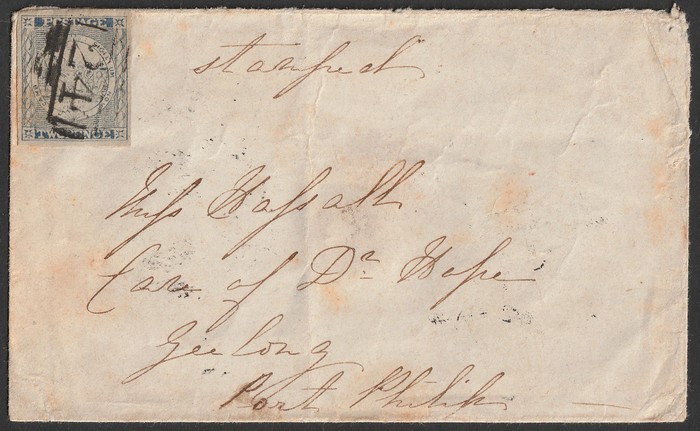 POSTAGE
TWO PENCE
24
stamped
Miss Hassall
Care of Dr Hope
Geelong
Port Philip